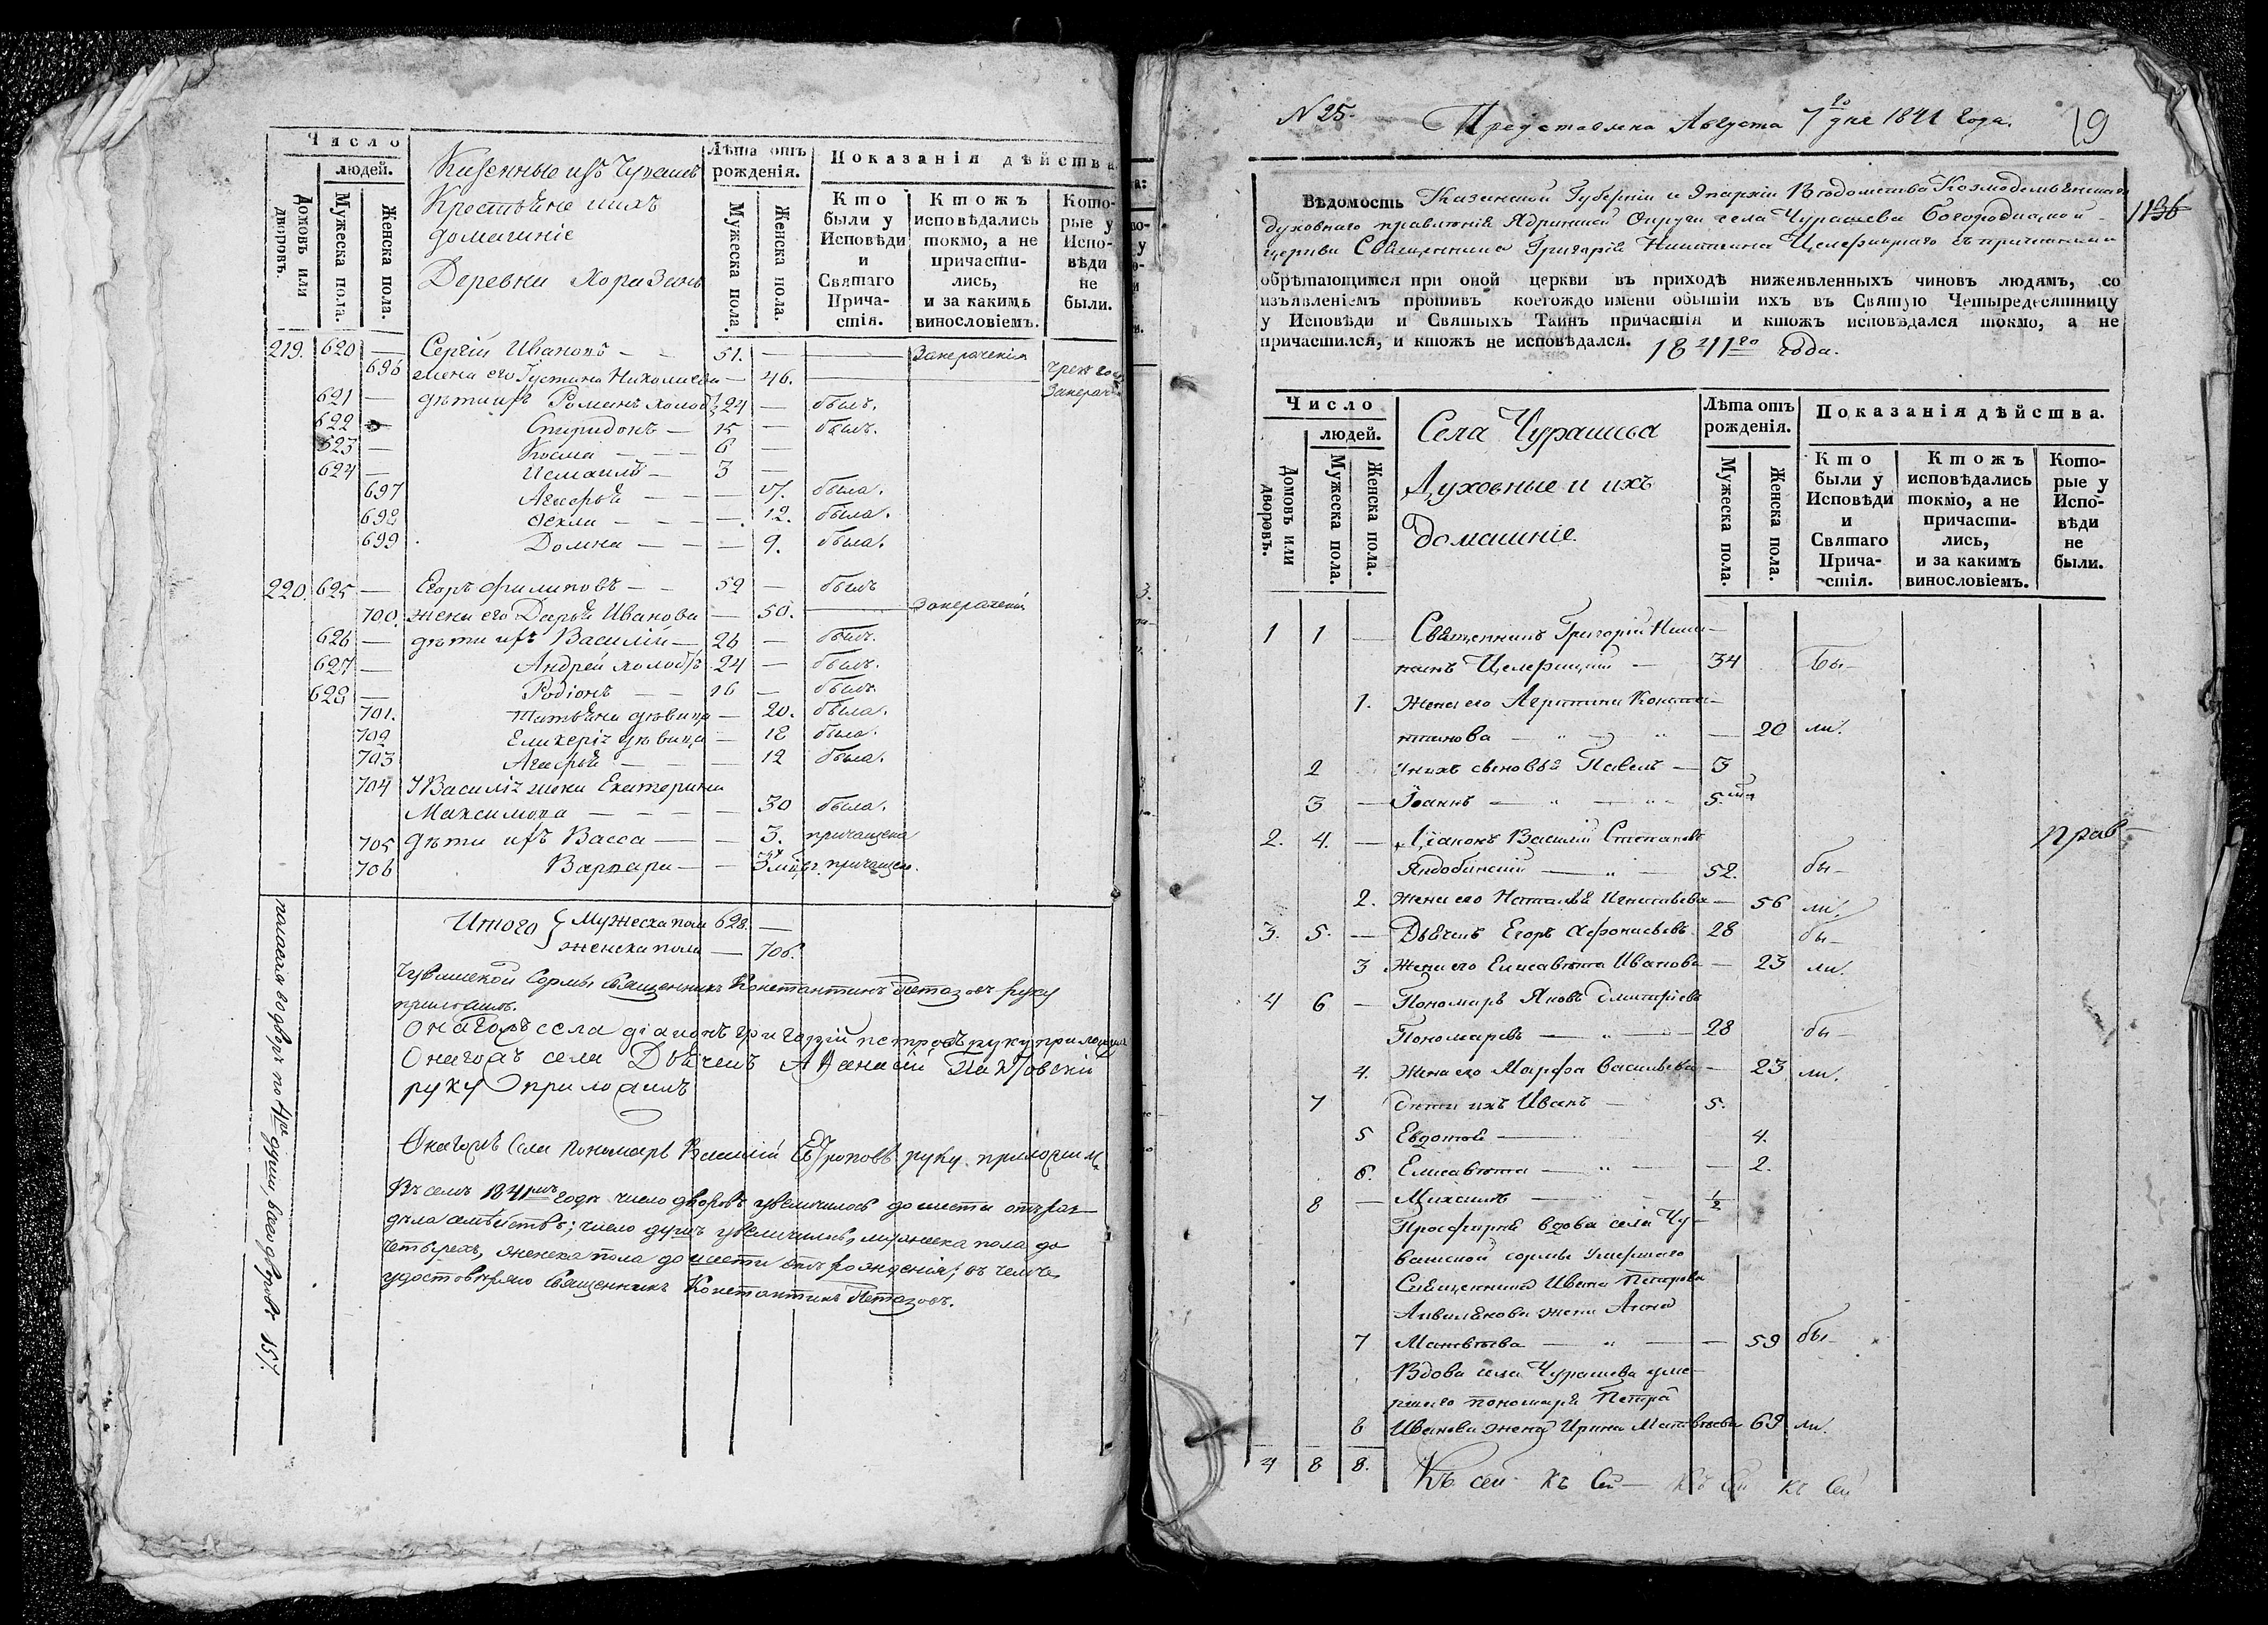 Число
людей.
Домовъ или дворовъ.
Мужеска пола.
Женска пола.
Казенные изъ Чувашъ
Крестьяне и ихъ
домашніе
Деревни
Лѣта отъ рожденія.
Мужеска пола
Женска пола.
Показанія дѣйства
Кто были у Исповѣди и Святаго Прича-стія.
Ктожъ исповѣдались токмо, а не причасти-лись, и за какимъ винословіемъ.
Кото-рые у Испо-вѣди не были.
219. 620 — Сергій Ивановъ — 51. —
696 жена его Николаева — 46.
621 — дѣти ихъ Романъ холостъ 24 — былъ.
622 — Спиридонъ — 15 — былъ.
623 — Косма — 6 —
624 — Исмаилъ — 3 —
697 Агафья — 17. была.
698 Фекла — 12. была.
699 Домна — 9. была.
220. 625 — Егоръ Филиповъ — 52 — былъ
700. жена его Дарья Иванова — 50.
626 — дѣти ихъ Василій — 26 — былъ.
627 — Андрей холостъ 24 — былъ.
628 — Родіонъ — 16 — былъ.
701. Татьяна дѣвица — 20. была.
702 Гликерія дѣвица — 18 была.
703 Агафья — 12 была.
704 У Василія жена Екатерина
Максимова — 30 была.
705 дѣти ихъ Васса — 3. причащена
706 Варвара — причащена.
Итого { Мужеска пола 628. —
женска пола — 706.
Чувашской Сормы священникъ Константинъ руку
приложилъ.
Онагожъ села діаконъ Григорій Петровъ руку приложилъ
Онагожъ села Дьячекъ Афанасій
руку приложилъ
Онагожъ села пономарь Василій руку приложилъ
Въ семъ 1841мъ годѣ число дворовъ увеличилось до шести отъ раз-
дѣла семѣйствъ; число душъ увеличилось, мужеска пола до
четырехъ, женска пола до шести отъ рожденія; въ чемъ
удостовѣряю священникъ Константинъ
№ 25. Представлена Августа 7го дня 1841 года. 19
1136
Вѣдомость Казанской Губерніи и Эпархіи Вѣдомства Козмодемьянскаго
духовнаго правленія Ядринской Округи села Чурашева Богородицкой
церкви Священника Григорія Никитина съ причтомъ
обрѣтающимся при оной церкви въ приходѣ нижеявленныхъ чиновъ людямъ, со
изъявленіемъ противъ коегождо имени обытіи ихъ въ Святую Четыредесятницу
у Исповѣди и Святыхъ Таинъ причастія и ктожъ исповѣдался токмо, а не
причастился, и ктожъ не исповѣдался. 1841го года.
Число
людей.
Домовъ или дворовъ.
Мужеска пола.
Женска пола.
Села Чурашева
Духовные и ихъ
домашніе.
Лѣта отъ рожденія.
Мужеска пола.
Женска пола.
Показанія дѣйства.
Кто были у Исповѣди и Святаго Прича-стія.
Ктожъ исповѣдались токмо, а не причасти-лись, и за какимъ винословіемъ.
Кото-рые у Испо-вѣди не были.
1 1 — Священникъ Григорій Ники-
тинъ — 34 бы-
1. Жена его Агрипина Конста-
нтинова — 20 ли.
2 У нихъ сыновья Павелъ — 3
3 — Іоаннъ — 5
2. 4. — Діаконъ Василій Степановъ прав-
Яндобинскій — 52. бы-
2. Жена его Наталья Игнатьева — 56 ли.
3. 5. — Дьячекъ Егоръ Афонасьевъ 28 бы-
3 Жена его Елисавета Иванова — 23 ли.
4 6 — Пономарь Яковъ Дмитріевъ
Пономаревъ — 28 бы-
4. Жена его Марфа Васильева — 23 ли.
7 дѣти ихъ Иванъ — 5.
5 Евдотья — 4.
6. Елисавета — 2.
8 — Михаилъ — ½
Просфирня вдова села Чу-
вашской сормы умершаго
Священника Ивана Петрова
жена Анна
7 Матвѣева — 59 бы-
Вдова села Чурашева уме-
ршаго пономаря Петра
8 Иванова жена Ирина Матвѣева 69 ли.
4 8 8. Къ сей Къ Сей Къ Сей Къ Сей